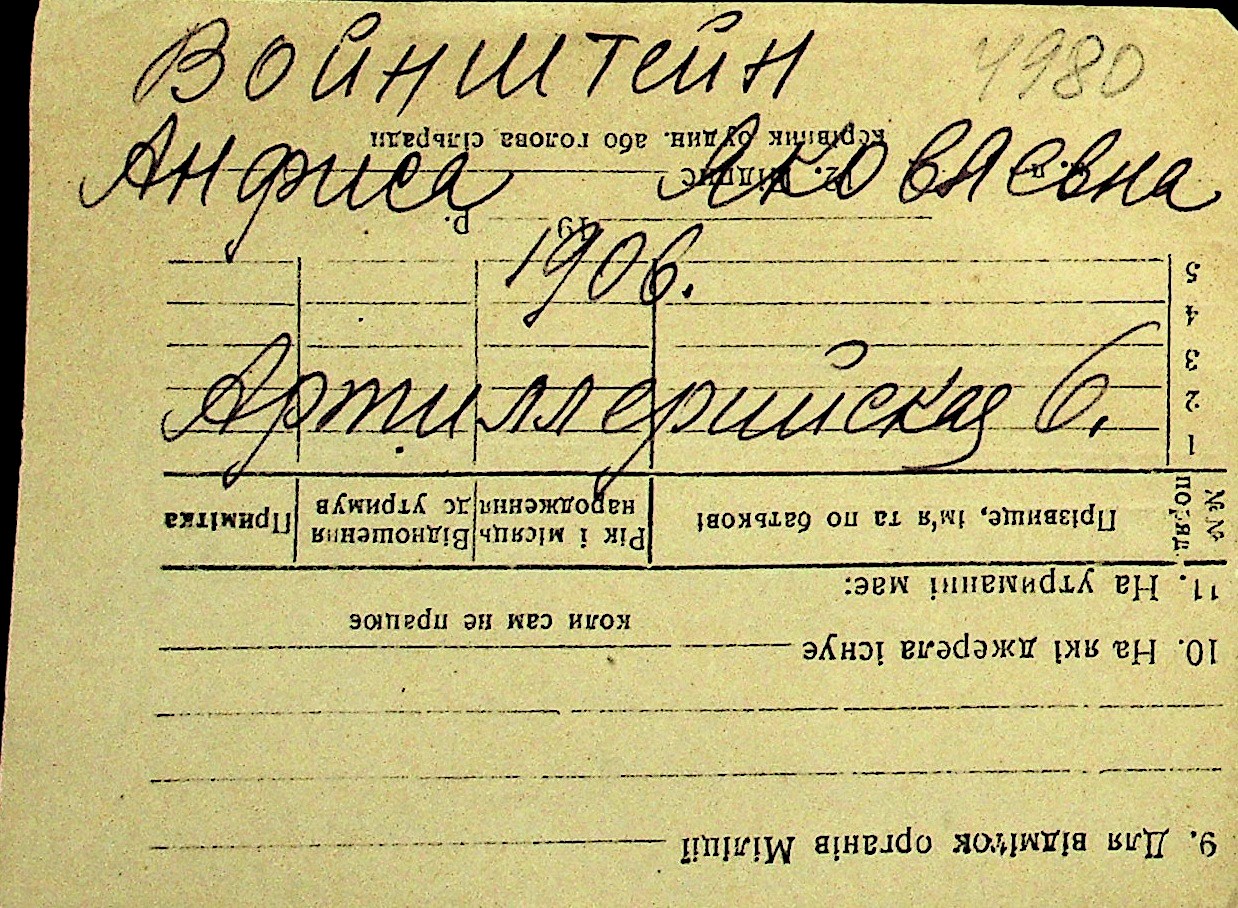 Войнштейн 4980
Анфиса Яковлевна
1906.
Артиллерийская 6.
9. Для відміток органів Міліції
10. На які джерела існує
коли сам не працює
11. На утриманні має:
№№ по ряд.
Прізвище, ім'я та по батькові
Рік і місяць народження
Відношення до утримув
Примітка
1
2
3
4
5
19 р.
12. Підпис
керівник будин. або голова сільради